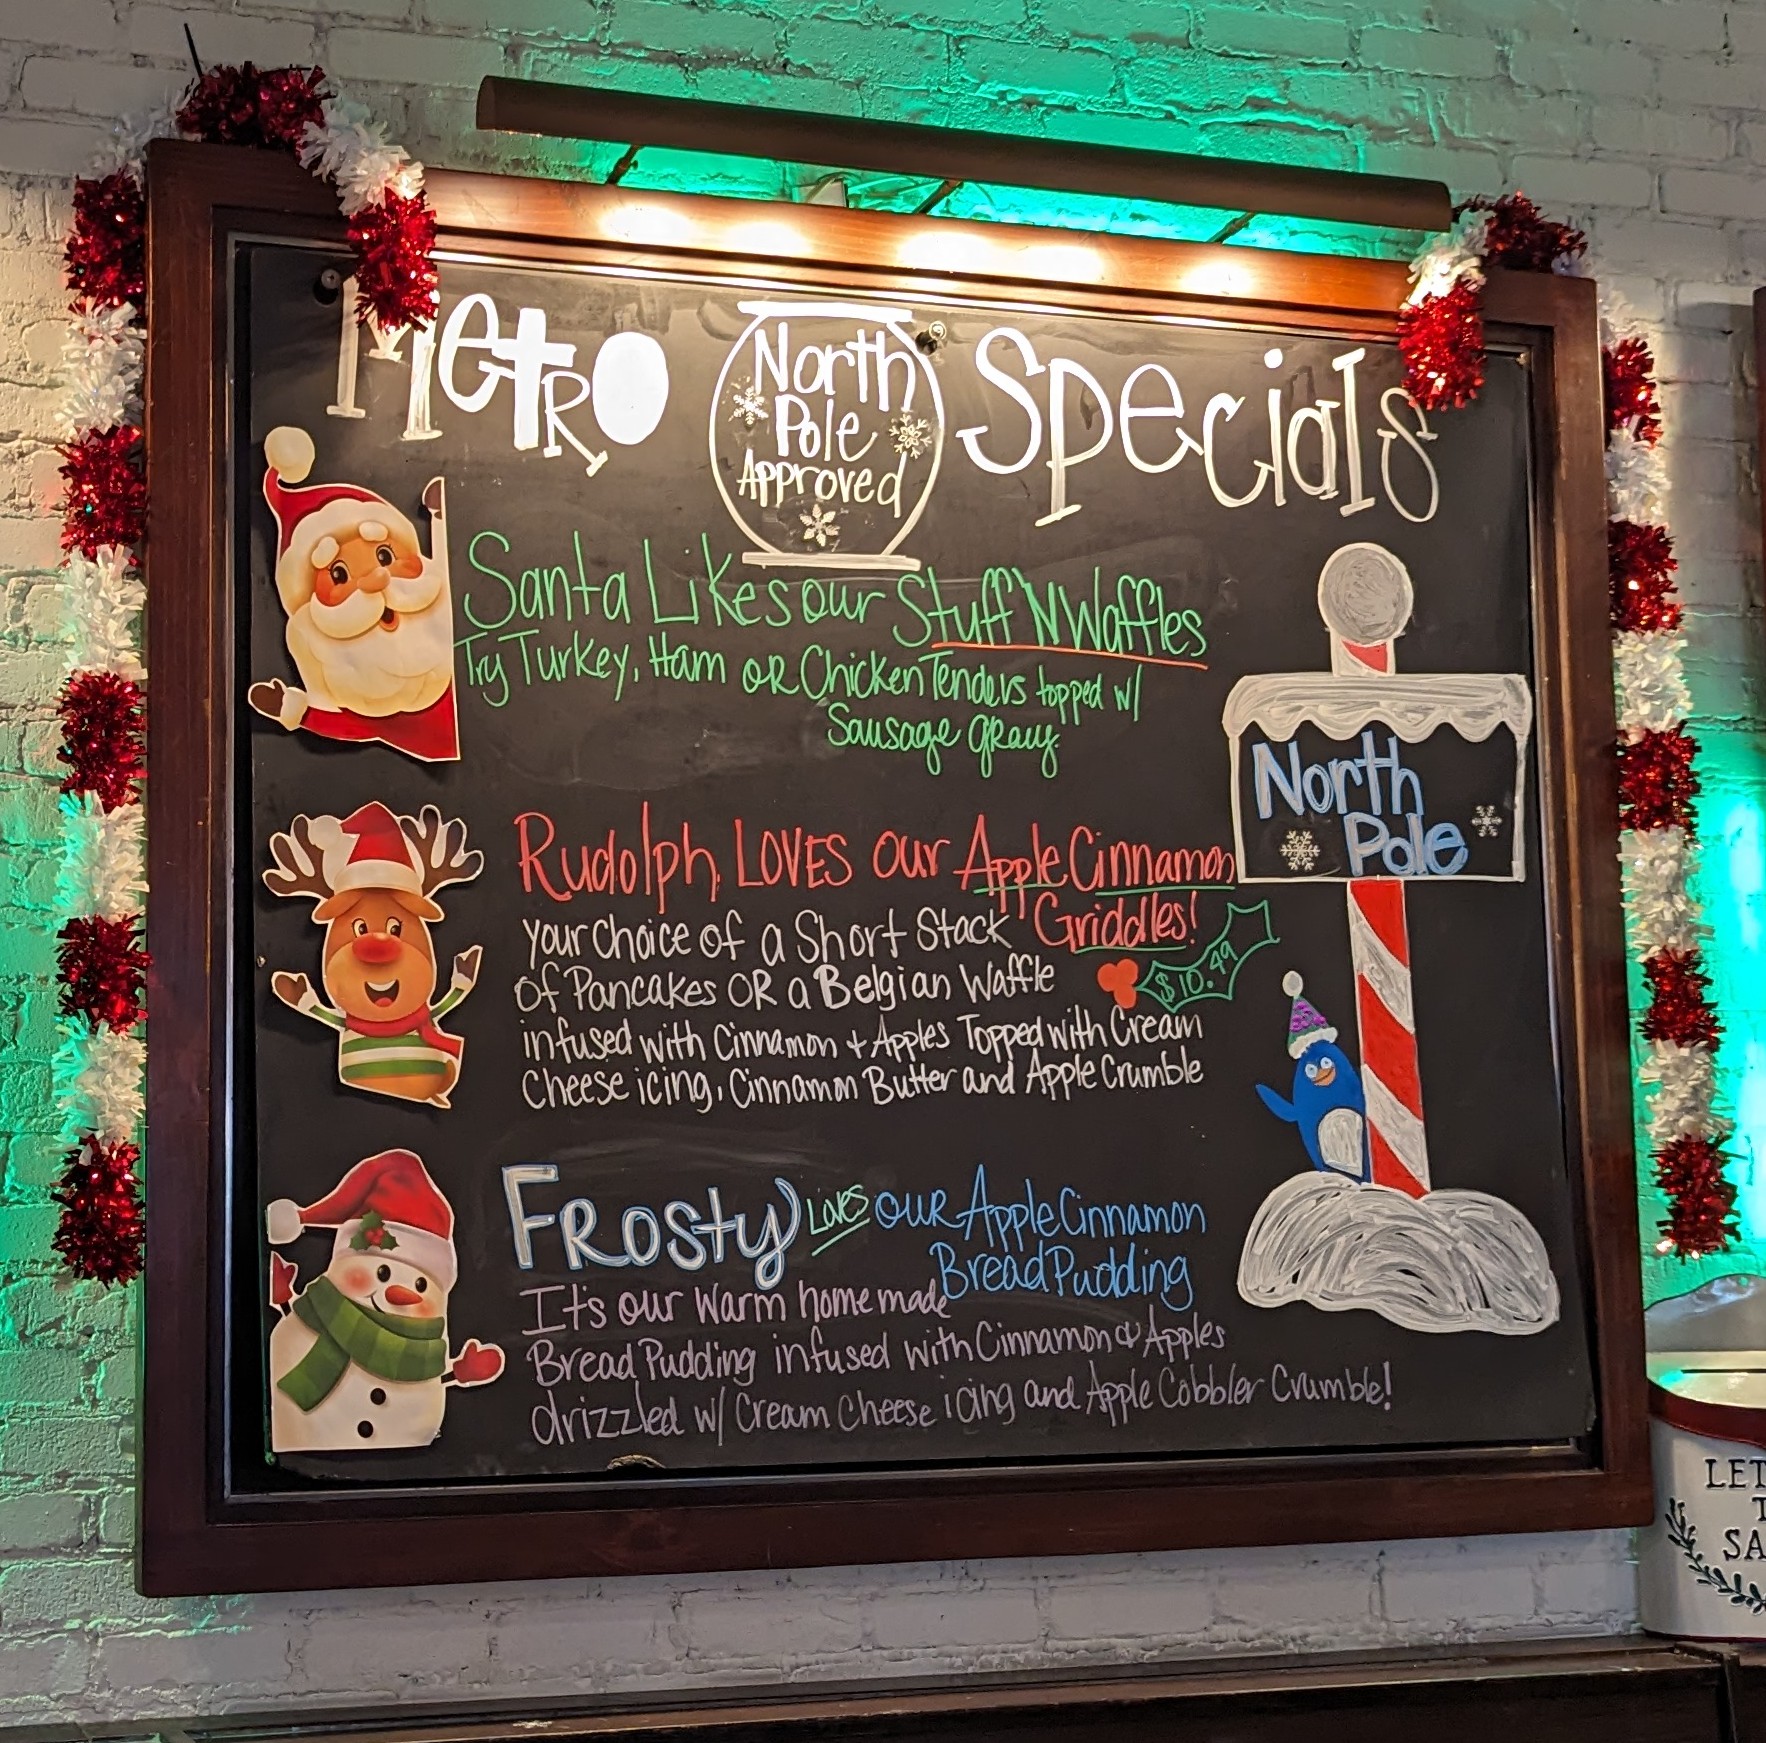 Metro North Pole Approved Specials
Santa Likes our Stuff 'N Waffles
Try Turkey, Ham or Chicken Tenders topped w/
Sausage gravy.
Rudolph LOVES our Apple Cinnamon
Griddles!
your choice of a Short Stack
of Pancakes OR a Belgian Waffle
$10.49
infused with Cinnamon + Apples Topped with Cream
Cheese icing, Cinnamon Butter and Apple Crumble
Frosty Loves our Apple Cinnamon
Bread Pudding
It's our warm homemade
Bread Pudding infused with Cinnamon & Apples
drizzled w/ Cream Cheese icing and Apple Cobbler Crumble!
North
Pole